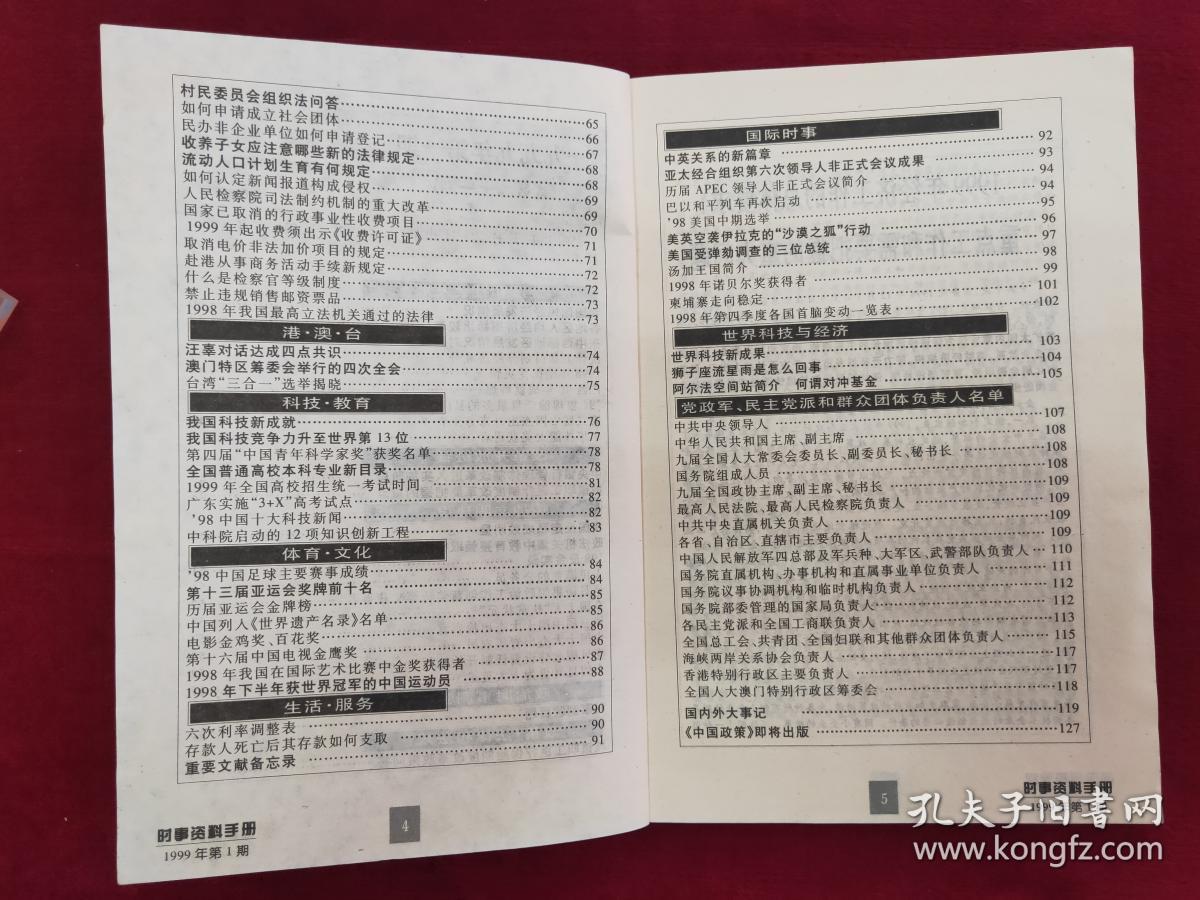 村民委员会组织法问答……65
如何申请成立社会团体……66
民办非企业单位如何申请登记……67
收养子女应注意哪些新的法律规定……68
流动人口计划生育有何规定……68
如何认定新闻报道构成侵权……69
人民检察院司法制约机制的重大改革……69
国家已取消的行政事业性收费项目……70
1999年起收费须出示《收费许可证》……71
取消电价非法加价项目的规定……71
赴港从事商务活动手续新规定……72
什么是检察官等级制度……72
禁止违规销售邮资票品……73
1998年我国最高立法机关通过的法律……73
港·澳·台
汪辜对话达成四点共识……74
澳门特区筹委会举行的四次全会……74
台湾“三合一”选举揭晓……75
科技·教育
我国科技新成就……76
我国科技竞争力升至世界第13位……77
第四届“中国青年科学家奖”获奖名单……78
全国普通高校本科专业新目录……78
1999年全国高校招生统一考试时间……81
广东实施“3+X”高考试点……82
'98中国十大科技新闻……82
中科院启动的12项知识创新工程……83
体育·文化
'98中国足球主要赛事成绩……84
第十三届亚运会奖牌前十名……84
历届亚运会金牌榜……85
中国列入《世界遗产名录》名单……85
电影金鸡奖、百花奖……86
第十六届中国电视金鹰奖……86
1998年我国在国际艺术比赛中金奖获得者……87
1998年下半年获世界冠军的中国运动员……88
生活·服务
六次利率调整表……90
存款人死亡后其存款如何支取……90
重要文献备忘录……91
时事资料手册
1999年第1期
4
国际时事
中英关系的新篇章……92
亚太经合组织第六次领导人非正式会议成果……93
历届APEC领导人非正式会议简介……94
巴以和平列车再次启动……94
'98美国中期选举……95
美英空袭伊拉克的“沙漠之狐”行动……96
美国受弹劾调查的三位总统……97
汤加王国简介……98
1998年诺贝尔奖获得者……99
柬埔寨走向稳定……101
1998年第四季度各国首脑变动一览表……102
世界科技与经济
世界科技新成果……103
狮子座流星雨是怎么回事……104
阿尔法空间站简介 何谓对冲基金……105
党政军、民主党派和群众团体负责人名单
中共中央领导人……107
中华人民共和国主席、副主席……108
九届全国人大常委会委员长、副委员长、秘书长……108
国务院组成人员……108
九届全国政协主席、副主席、秘书长……109
最高人民法院、最高人民检察院负责人……109
中共中央直属机关负责人……109
各省、自治区、直辖市主要负责人……109
中国人民解放军四总部及军兵种、大军区、武警部队负责人…110
国务院直属机构、办事机构和直属事业单位负责人……111
国务院议事协调机构和临时机构负责人……112
国务院部委管理的国家局负责人……112
各民主党派和全国工商联负责人……113
全国总工会、共青团、全国妇联和其他群众团体负责人……115
海峡两岸关系协会负责人……117
香港特别行政区主要负责人……117
全国人大澳门特别行政区筹委会……118
国内外大事记……119
《中国政策》即将出版……127
5
时事资料手册
1999年第1期
孔夫子旧书网
www.kongfz.com